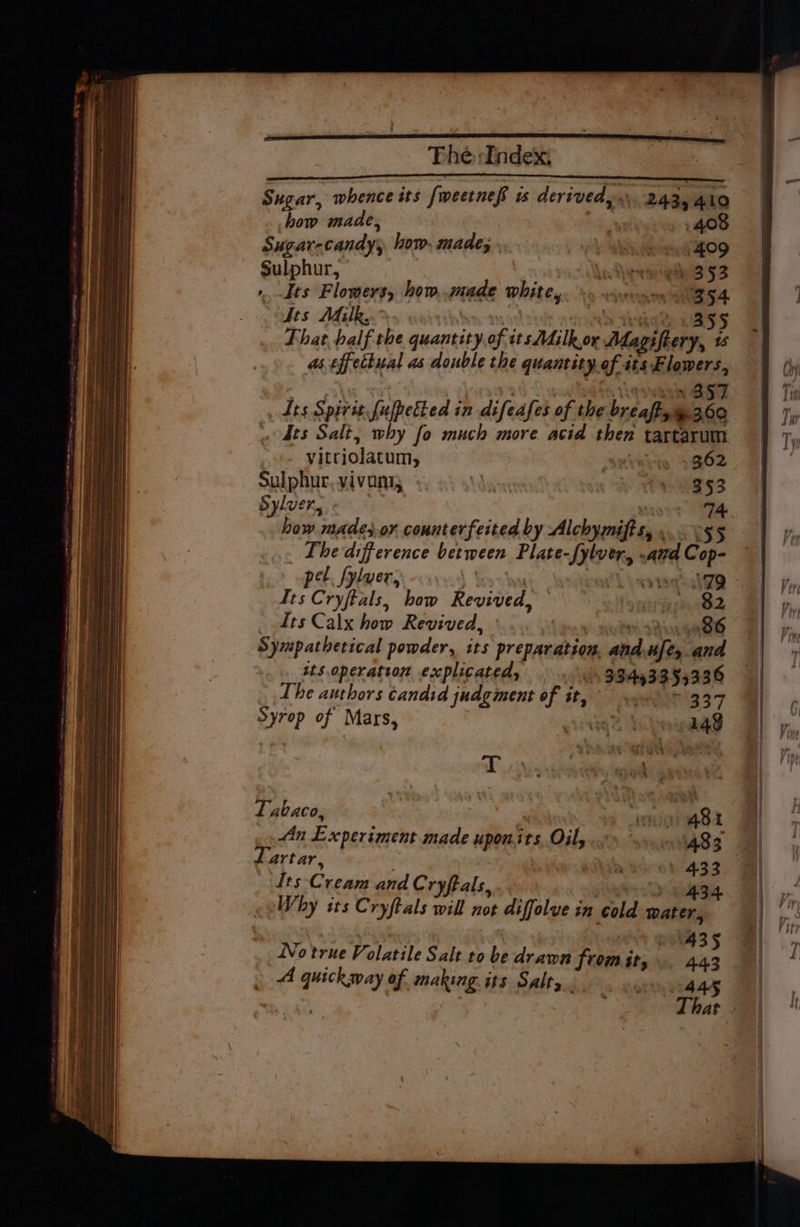 The Index.
Sugar, whence its ſweetneſs is derived, 243, 410
how made, 408
Sugar-candy, how made, 409
Sulphur, 353
Its Flowers, how made white, 354
Its Milk, 355
That half the quantity of its Milk or Magiſtery, is
as effectual as double the quantity of its Flowers,
357
Its Spirit ſuſpected in diſeaſes of the breaſt, 360
Its Salt, why ſo much more acid then tartarum
vitriolatum, 362
Sulphur vivum, 353
Sylver, 74
how made, or counterfeited by Alchymiſts, 55
The difference between Plate-ſylver, and Cop-
pel ſylver, 79
Its Cryſtals, how Revived, 82
Its Calx how Revived, 86
Sympathetical powder, its preparation, and uſe, and
its operation explicated, 334, 335, 336
The authors candid judgment of it, 337
Syrop of Mars, 148
T
Tabaco, 481
An Experiment made upon its Oil, 483
Tartar, 433
Its Cream and Cryſtals, 434
Why its Cryſtals will not diſſolve in cold water,
435
No true Volatile Salt to be drawn from it, 443
A quick way of making its Salt, 445
That